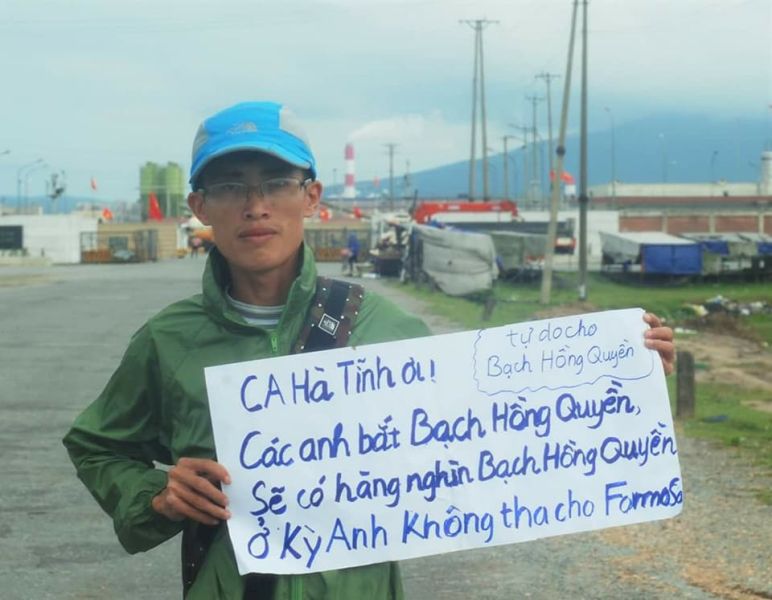 tự do cho
Bạch Hồng Quyền
CA Hà Tĩnh ơi!
Các anh bắt Bạch Hồng Quyền,
Sẽ có hàng nghìn Bạch Hồng Quyền
ở Kỳ Anh không tha cho Formosa